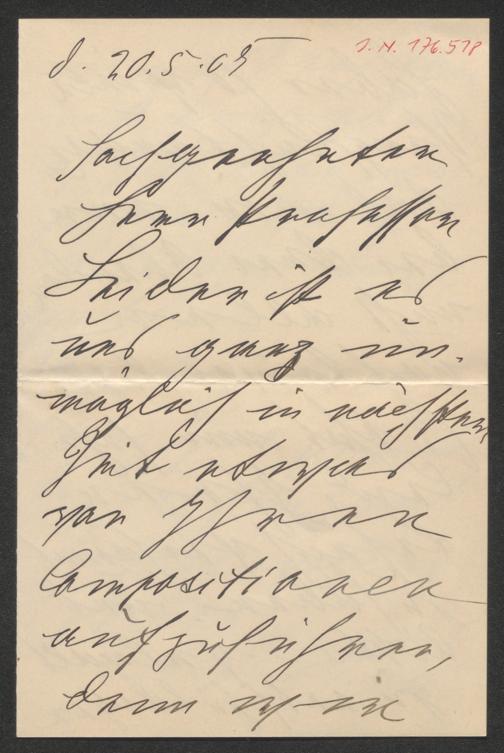 d. 20.5.05
J.N. 176.578
Hochgeehrter
Herr Professor
Leider ist es
uns ganz un-
möglich in nächster
Zeit etwas
von Ihren
Compositionen
aufzuführen,
denn wir